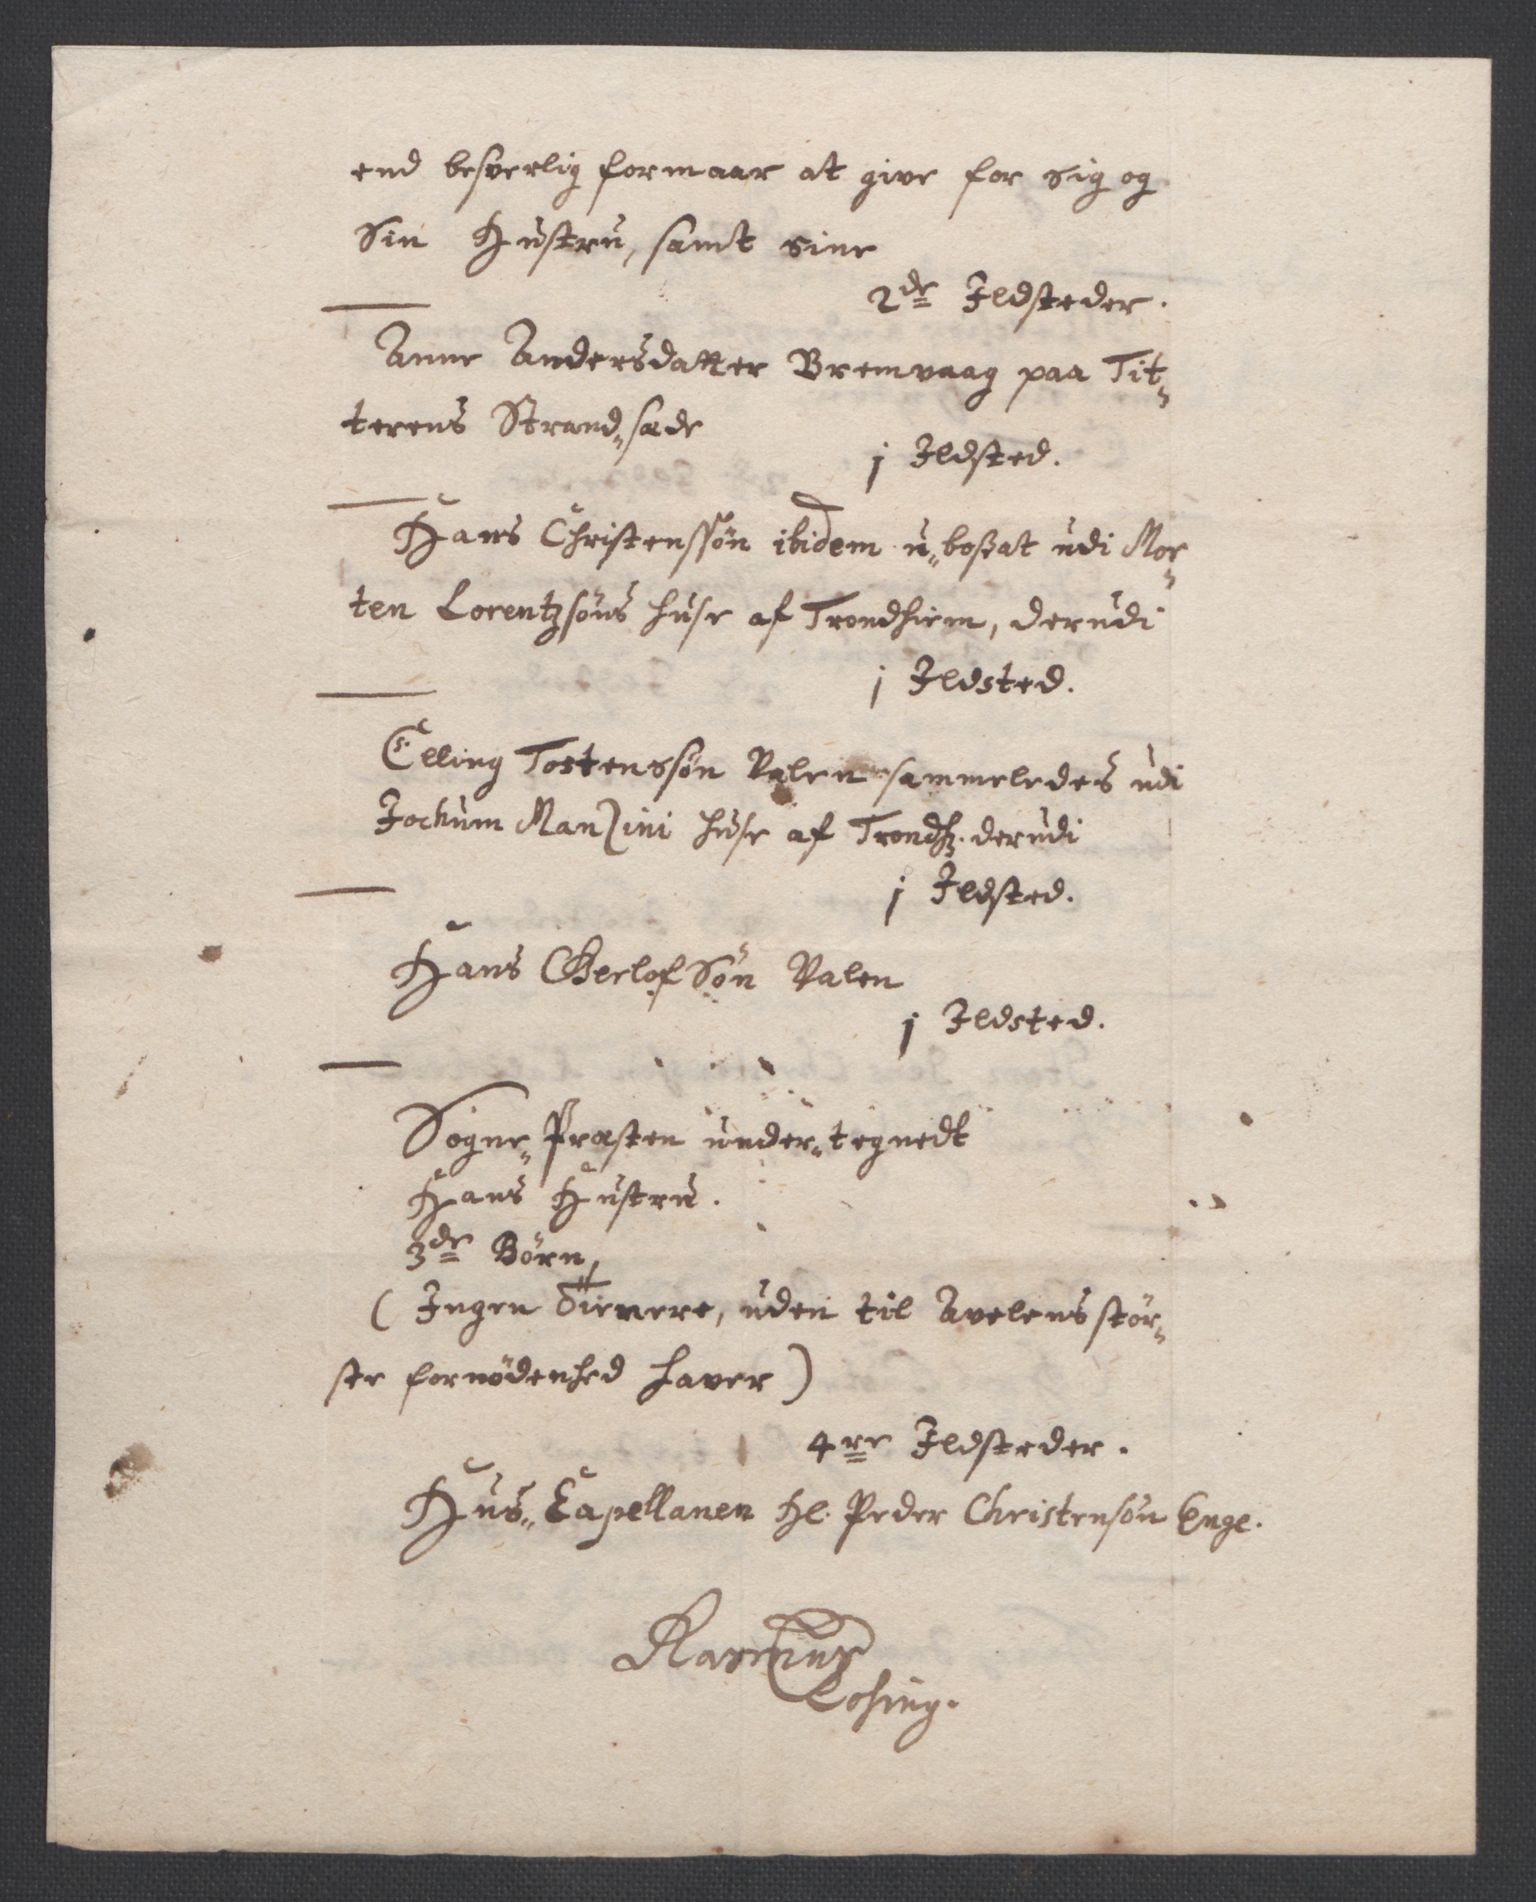 end besverlig formaar at give for sig og
Sin Hustru, samt sine
2de Ildsteder.
Anne Andersdatter Bremvaag paa Tit„
terens Strand„sæde
j Ildsted.
Hans Christenssøn ibidem u„boßat udi Mor„
ten Lorentzsøns huse af Trondhiem, derudi
j Ildsted.
Elling Tostenssøn Valen sammeledes udi
Jochum Manzini huse af Trondh. derudi
j Ildsted.
Hans Gerlofsøn Valen
j Ildsted.
Sogne„Præsten under„tegnedt
Hans Hustru.
3de Børn,
(Ingen Tienere, uden til Avelens stør„
ste fornødenhed haver)
4re Ildsteder.
Hus„Capellanen Hl. Peder Christensøn Enge.
Rasmus
Losing.